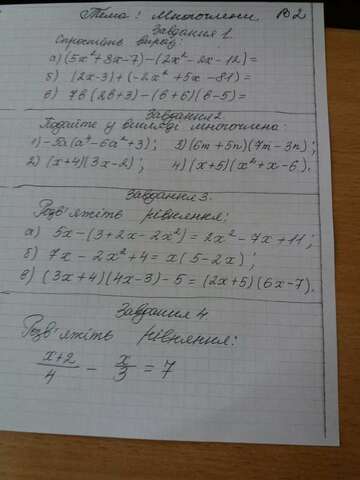 Тема: Многочлени. В2
Завдання 1.
Спростіть вираз:
а) (5x² + 8x - 7) - (2x² - 2x - 12) =
б) (2x - 3) + (-2x² + 5x - 81) =
в) 7в (2в + 3) - (в + 6)(в - 5) =
Завдання 2
Подайте у вигляді многочлена:
1) -5a(a⁴ - 6a² + 3); 3) (6m + 5n)(7m - 3n);
2) (x + 4)(3x - 2); 4) (x + 5)(x² + x - 6).
Завдання 3.
Розв'яжіть рівняння:
а) 5x - (3 + 2x - 2x²) = 2x² - 7x + 11;
б) 7x - 2x² + 4 = x (5 - 2x);
в) (3x + 4)(4x - 3) - 5 = (2x + 5)(6x - 7).
Завдання 4
Розв'яжіть рівняння:
(x+2)/4 - x/3 = 7